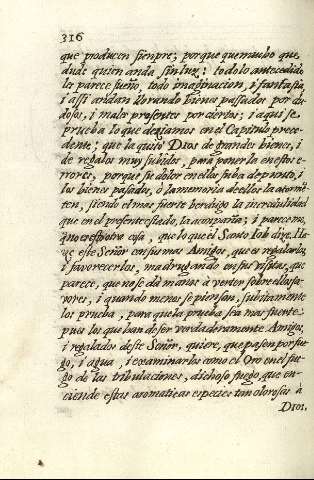 316
que producen sienpre; porque que mucho que
dude quien anda sin luz; todo lo antecedido
le parece sueño, todo imaginacion, i fantasia,
i assi andan llorando bienes passados por du-
dosos, i males presentes por ciertos; i aqui se
prueba lo que deziamos en el Capitulo prece-
dente; que la quitò Dios de grandes bienes, i
de regalos muy subidos, para ponerla en estos e-
rrores, porque su dolor en ellos suba de punto, i
los bienes pasados, ò la memoria de ellos la atormē-
ten, siendo el mas fuerte berdugo la incredulidad
que en el presente estado, la aconpaña; i pareceme,
q̄ no es esto otra cosa, que lo que el Santo Iob dize. Ha-
ze este Señor con sus mas Amigos, que es regalarlos,
i favorecerlos, madrugando en sus visitas, que
parece, que no se dà manos à verter sobre ellos fa-
vores, i quando menos se piensan, subitamente
los prueba, para que la prueba sea mas fuerte:
pues los que han de ser verdaderamente Amigos,
i regalados deste Señor, quiere, que pasen por fue-
go, i agua, i examinarlos como el Oro en el fue-
go de las tribulaciones, dichoso fuego, que en-
ciende estas aromaticas especies tan olorosas à
Dios.